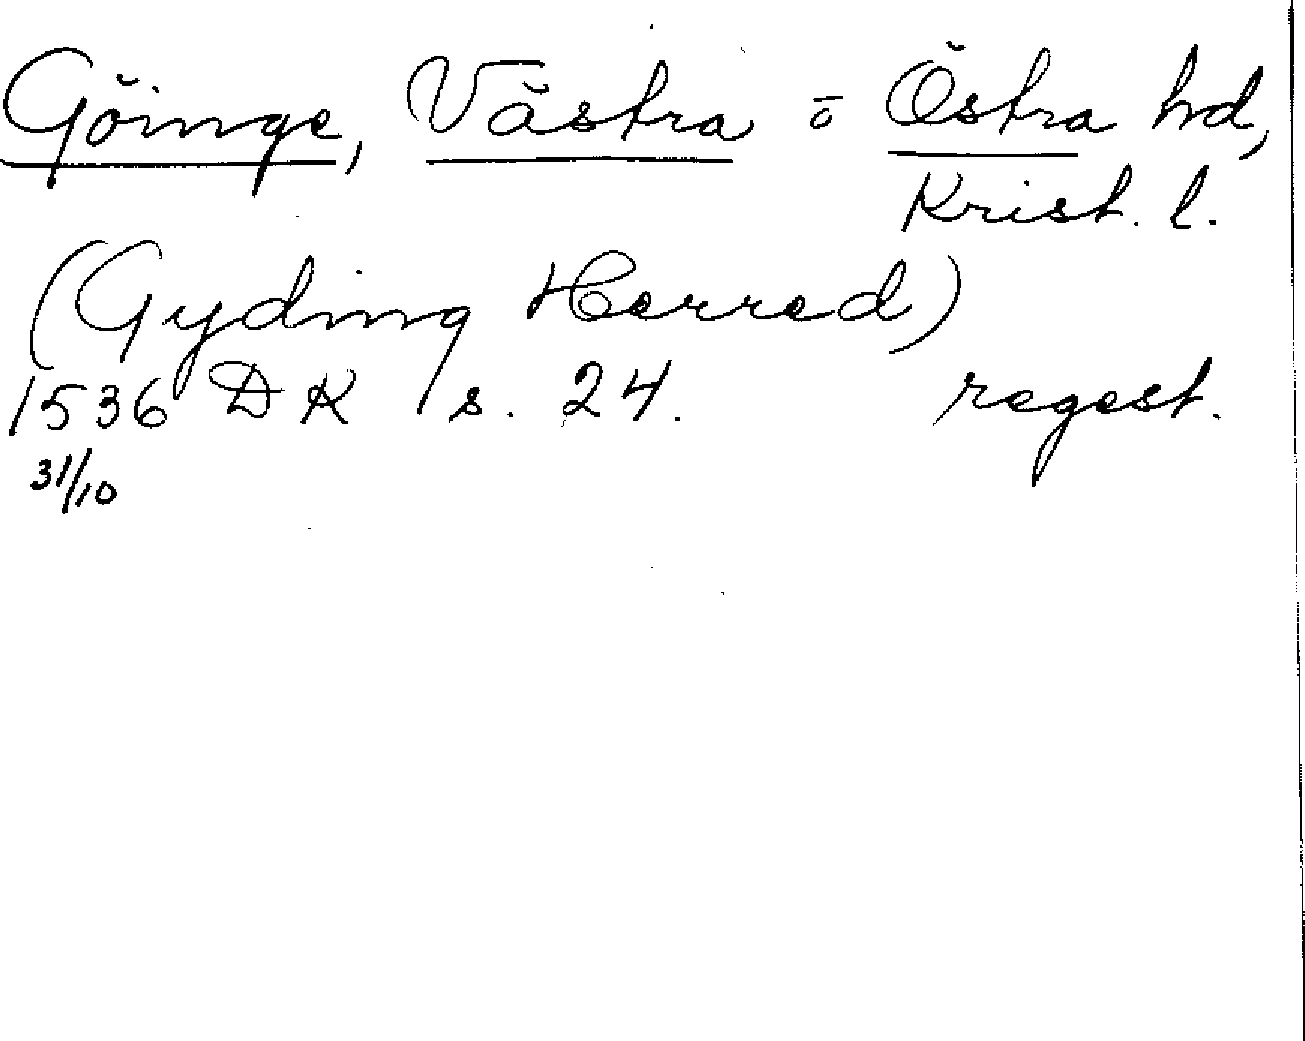 Göinge, Västra o Östra hd,
Krist. l.
(Gyding Herred)
1536 DK s. 24. regest.
31/10